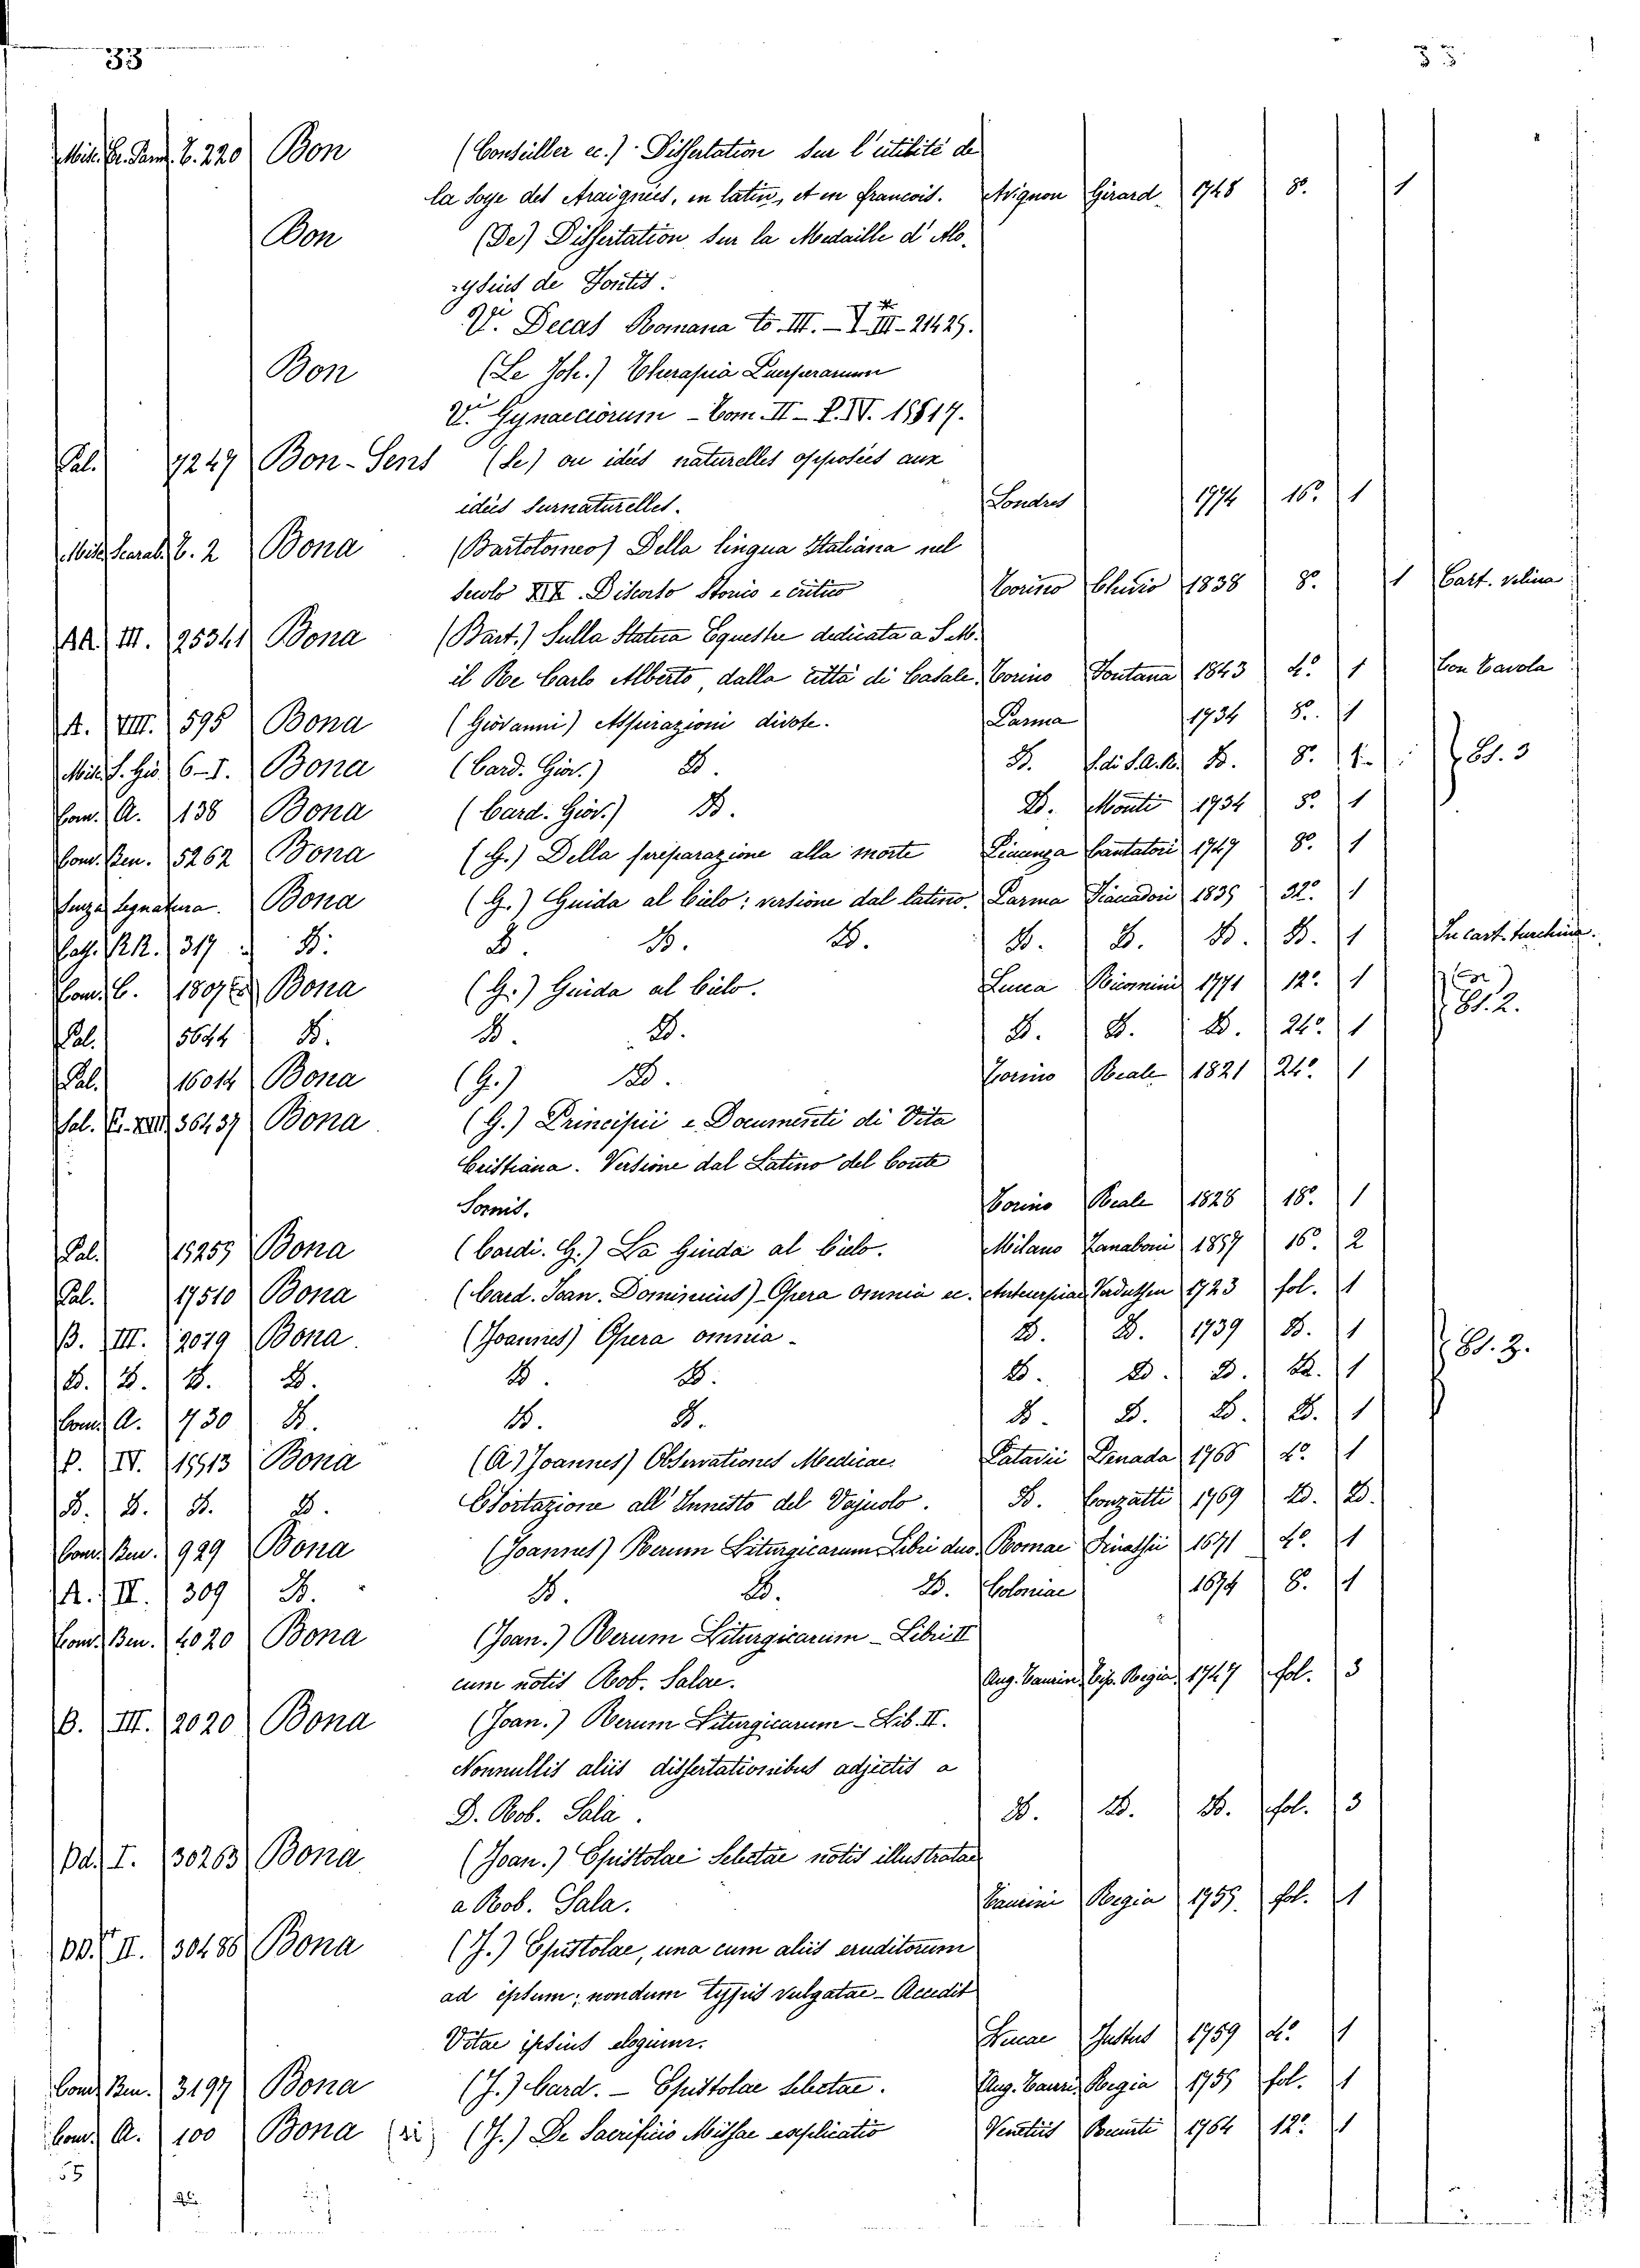 33 33
Bon (Conseiller ec.) Dissertation sur l'utilité de
la soye des Araignées, en latin, et en francois. Avignon Girard 1748 8°. 1
Bon (De) Dissertation sur la Medaille d'
de Fontis:
V. Decas Romana to. III. - 21429.
Bon (Le Joh.) Therapia Puerperarum
V. Gynaeciorum - Tom. II - P. IV. 15517.
Pal. 7247 Bon-Sens (Le) ou idées naturelles opposées aux
idées surnaturelles. Londres 1774 16° 1
Bona (Bartolomeo) Della lingua Italiana nel
secolo XIX. Discorso Storico e critico Torino 1838 8°. 1 Cart. velina
AA. III. 25341 Bona (Bart.) Sulla Statua Equestre dedicata a S. M.
il Re Carlo Alberto, dalla città di Casale. Torino Fontana 1843 4° 1 Con Tavola
A. VIII. 595 Bona (Giovanni) Aspirazioni divote. Parma 1734 8°. 1
6-I. Bona (Card. Giov.) D. D. D. 8° 1 Es. 3
Com. A. 138 Bona (Card. Giov.) D. D. Monti 1734 8° 1
Com. Ben. 5262 Bona (G.) Della preparazione alla morte 1747 8°. 1
Senza segnatura. Bona (G.) Guida al Cielo: versione dal latino. Parma Fiaccadori 1835 32°. 1
317 D. D. D. D. D. D. D. D. 1 In cart. turchina.
Com. C. Bona (G.) Guida al Cielo. Lucca 1771 12° 1
Pal. 5644 D. D. D. D. D. D. 24° 1 Es. 2.
Pal. 16014 Bona (G.) D. Torino Reale 1821 24° 1
Bona (G.) Principii e Documenti di Vita
Cristiana. Versione dal Latino del Conte
Sornis. Torino Reale 1828 18°. 1
Pal. 15259 Bona (Cardi. G.) La Guida al Cielo. Milano Zanaboni 1857 16° 2
Pal. 17510 Bona (Card. Joan. Dominicus) Opera omnia ec. Antuerpiae Verdussen 1723 fol. 1
B. III. 2019 Bona (Joannes) Opera omnia - D. D. 1739 D. 1 Es. 3.
D. D. D. D. D. D. D. D. D. D. 1
Com. A. 730 D. D. D. D. D. D. D. 1
P. IV. 15513 Bona (A Joannes) Observationes Medicae. Patavii Penada 1768 4° 1
D. D. D. D. Esortazione all'Innesto del Vajuolo. D. Conzatti 1769 D. D.
Com. Ben. 929 Bona (Joannes) Rerum Liturgicarum Libri duo. Romae Tinassii 1671 4° 1
A. II. 309 D. D. D. D. Coloniae 1674 8. 1
Com. Ben. 4020 Bona (Joan.) Rerum Liturgicarum - Libri II
cum notis Rob. Salae. Aug. Taurin. Regia 1747 fol. 3
B. III. 2020 Bona (Joan.) Rerum Liturgicarum - Lib. II.
Nonnullis aliis dissertationibus adjectis a
D. Rob. Sala. D. D. D. fol. 3
Dd. I. 30263 Bona (Joan.) Epistolae Selectae notis illustratae
a Rob. Sala. Taurini Regia 1755 fol. 1
DD. II. 30486 Bona (J.) Epistolae, una cum aliis eruditorum
ad ipsum; nondum typis vulgatae - Accedit
Vitae ipsius elogium. Lucae Justus 1759 4° 1
Com. Ben. 3197 Bona (J.) Card. - Epistolae selectae. Aug. Taurin. Regia 1755 fol. 1
Com. A. 100 Bona (J.) De Sacrificio Missae explicatio Venetiis Recurti 1764 12° 1
55